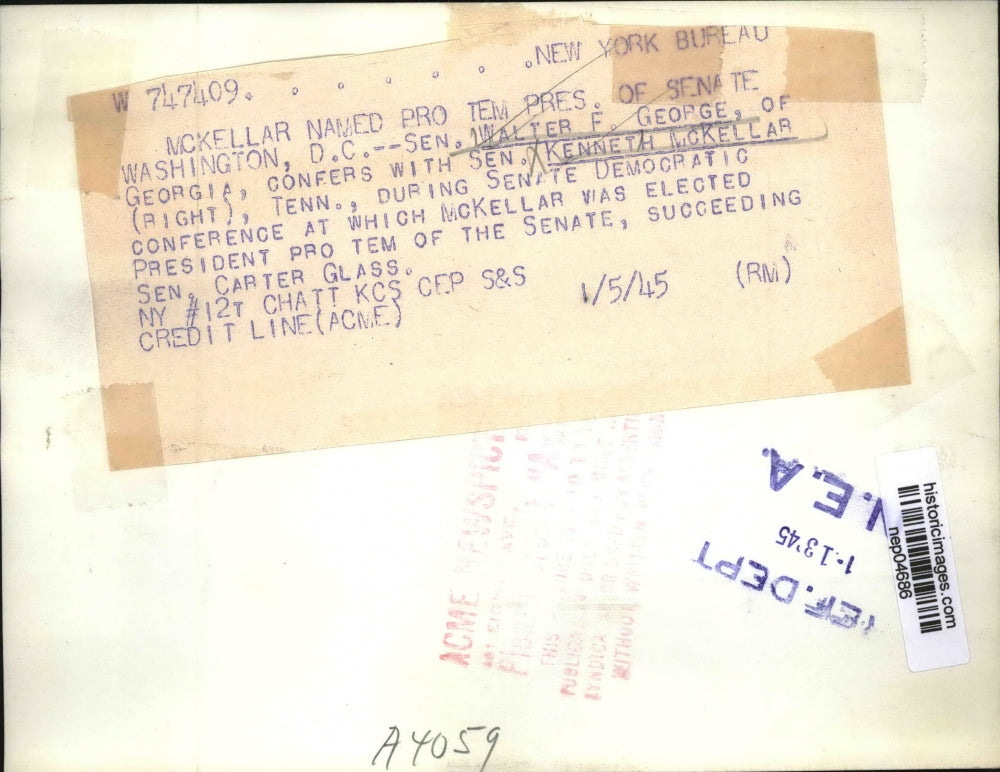 W 747409. . . . . . . .NEW YORK BUREAU
MCKELLAR NAMED PRO TEM PRES. OF SENATE
WASHINGTON, D.C.--SEN. WALTER F. GEORGE, OF
GEORGIA, CONFERS WITH SEN. KENNETH MCKELLAR
(RIGHT), TENN., DURING SENATE DEMOCRATIC
CONFERENCE AT WHICH MCKELLAR WAS ELECTED
PRESIDENT PRO TEM OF THE SENATE, SUCCEEDING
SEN. CARTER GLASS.
NY #12T CHATT KCS CEP S&S 1/5/45 (RM)
CREDIT LINE(ACME)
ACME
THIS
WITHOUT WRITTEN
N.E.A.
1-13'45
REF. DEPT
historicimages.com
nep04686
A4059